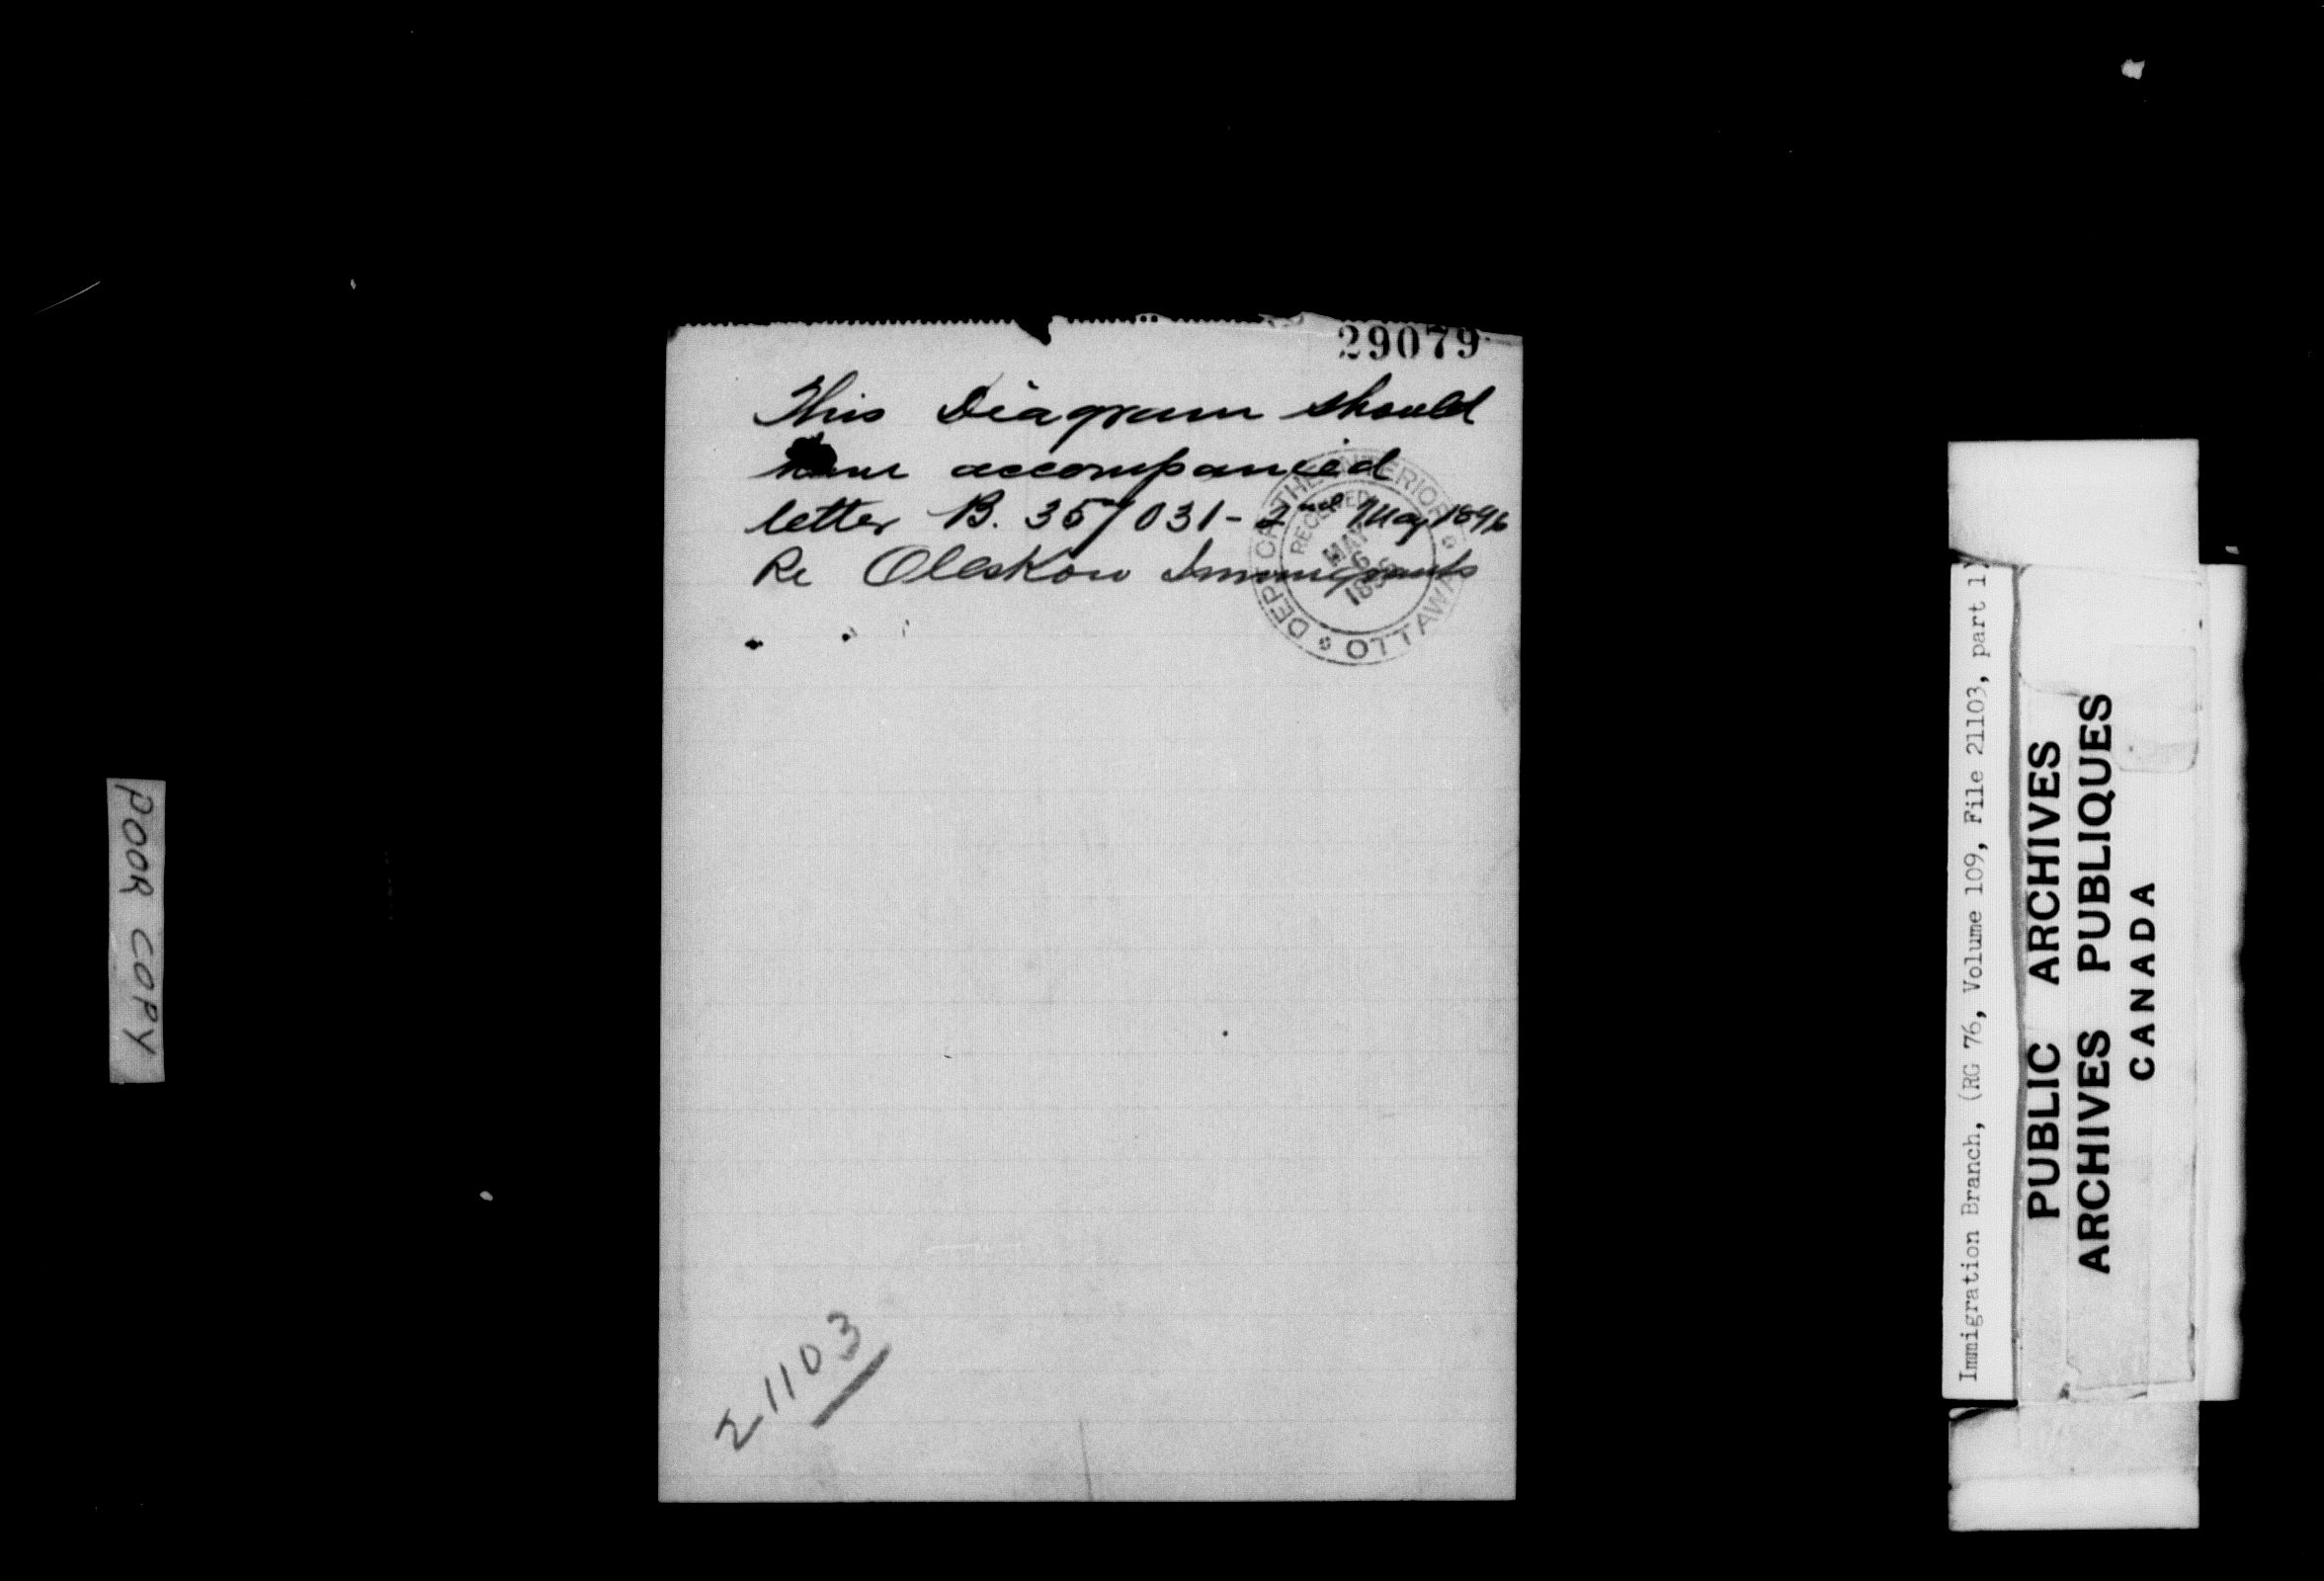 29079
This Diagram should
have accompanied
letter B. 357031 - 2nd May 1896
Re Oleskow Immigrants
DEPT OF THE INTERIOR
OTTAWA
RECEIVED
MAY
6
1896
21103
POOR COPY
Immigration Branch, (RG 76, Volume 109, File 21103, part 1)
PUBLIC ARCHIVES
ARCHIVES PUBLIQUES
CANADA